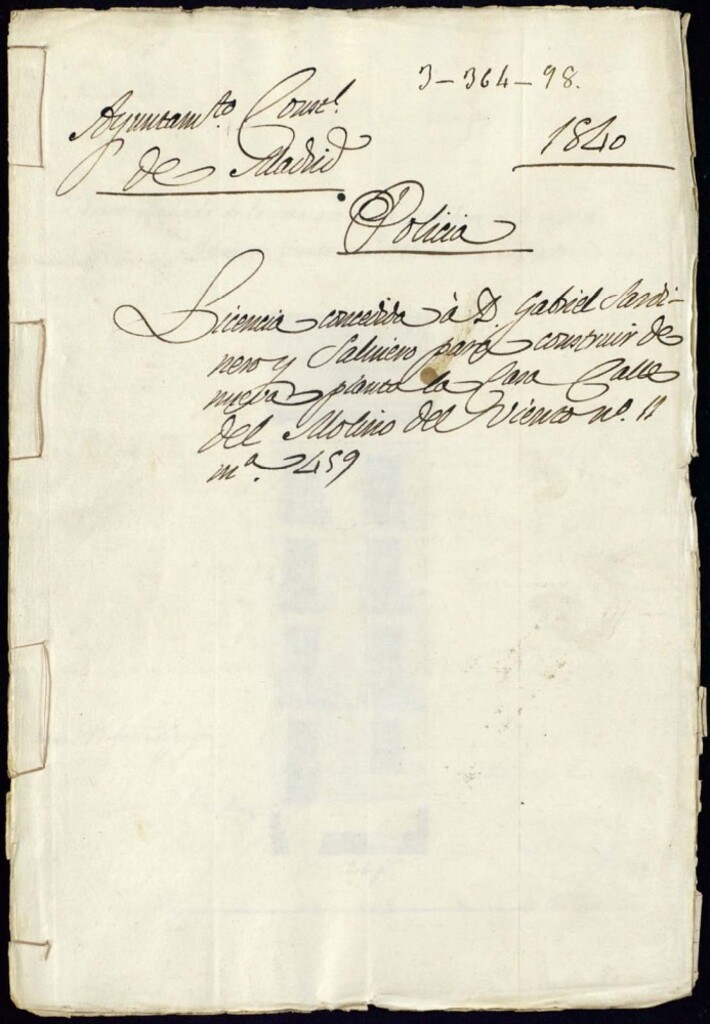 3-364-98.
Ayuntam.to Const.l
de Madrid
1840
Policia
Licencia concedida à D. Gabriel Sardi-
nero y Salniero para construir de
nueva planta la Casa Calle
del Molino del Viento nº. 11
m.a 459